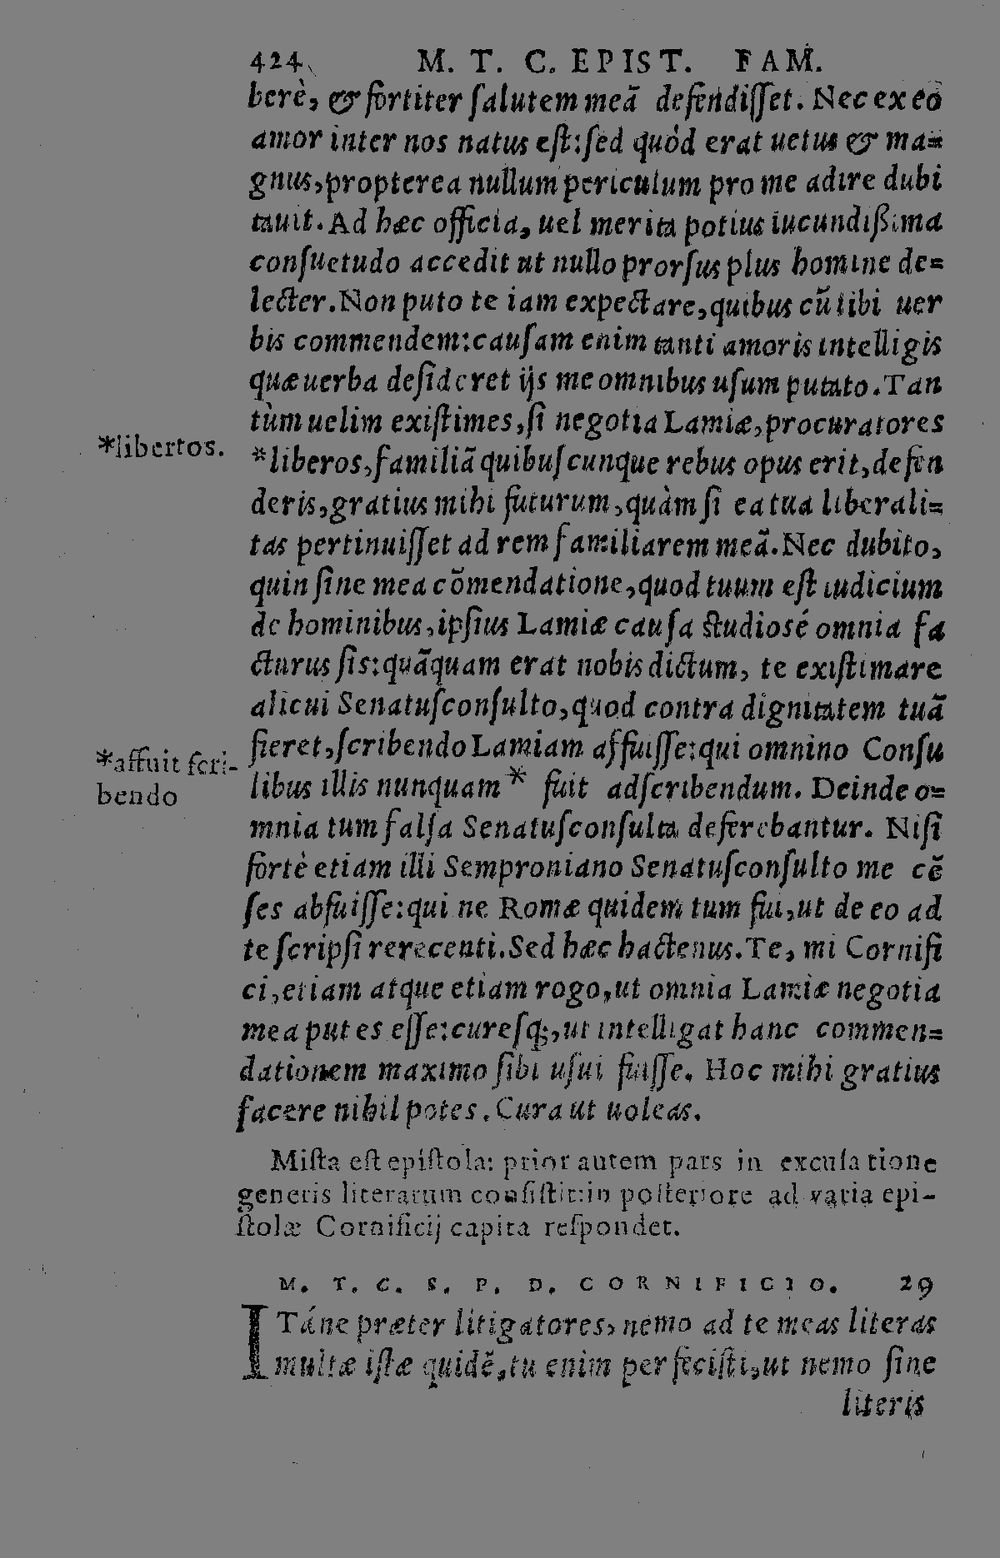 424 M. T. C. EPIST. FAM.
berè, & fortiter ſalutem meã defendiſſet. Nec ex eo
amor inter nos natus eſt: ſed quòd erat uetus & ma=
gnus, propterea nullum periculum pro me adire dubi
tauit. Ad hæc officia, uel merita potius iucundißima
conſuetudo accedit ut nullo prorſus plus homine de=
lecter. Non puto te iam expectare, quibus cũ tibi uer
bis commendem: cauſam enim tanti amoris intelligis
quæ uerba deſideret ijs me omnibus uſum putato. Tan
tùm uelim exiſtimes, ſi negotia Lamiæ, procuratores
*libertos.
*liberos, familiã quibuſcunque rebus opus erit, defen
deris, gratius mihi futurum, quàm ſi ea tua liberali=
tas pertinuiſſet ad rem familiarem meã. Nec dubito,
quin ſine mea cõmendatione, quod tuum eſt iudicium
de hominibus, ipſius Lamiæ cauſa ſtudiosé omnia fa
cturus ſis: quãquam erat nobis dictum, te exiſtimare
alicui Senatuſconſulto, quod contra dignitatem tuã
fieret, ſcribendo Lamiam affuiſſe: qui omnino Conſu
*affuit ſcri-
bendo
libus illis nunquam * fuit adſcribendum. Deinde o=
mnia tum falſa Senatuſconſulta deferebantur. Niſi
fortè etiam illi Semproniano Senatuſconſulto me cẽ
ſes abfuiſſe: qui ne Romæ quidem tum fui, ut de eo ad
te ſcripſi re recenti. Sed hæc hactenus. Te, mi Cornifi
ci, etiam atque etiam rogo, ut omnia Lamiæ negotia
mea putes eſſe: cureſq;, ut intelligat hanc commen=
dationem maximo ſibi uſui fuiſſe. Hoc mihi gratius
facere nihil potes. Cura ut uoleas.
Miſta eſt epiſtola: prior autem pars in excuſatione
generis literarum conſiſtit: in poſteriore ad varia epi-
ſtolæ Cornificij capita reſpondet.
M. T. C. S. P. D. CORNIFICIO. 29
ITáne præter litigatores, nemo ad te meas literas
multæ iſtæ quidẽ, tu enim perfeciſti, ut nemo ſine
literis